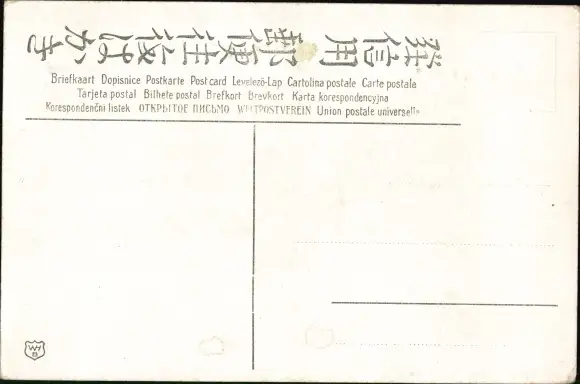 發信用 郵便往復はがき
Briefkaart Dopisnice Postkarte Post card Levelező-Lap Cartolina postale Carte postale
Tarjeta postal Bilhete postal Brefkort Brevkort Karta korespondencyjna
Korespondenční listek ОТКРЫТОЕ ПИСЬМО WELTPOSTVEREIN Union postale universelle
WH